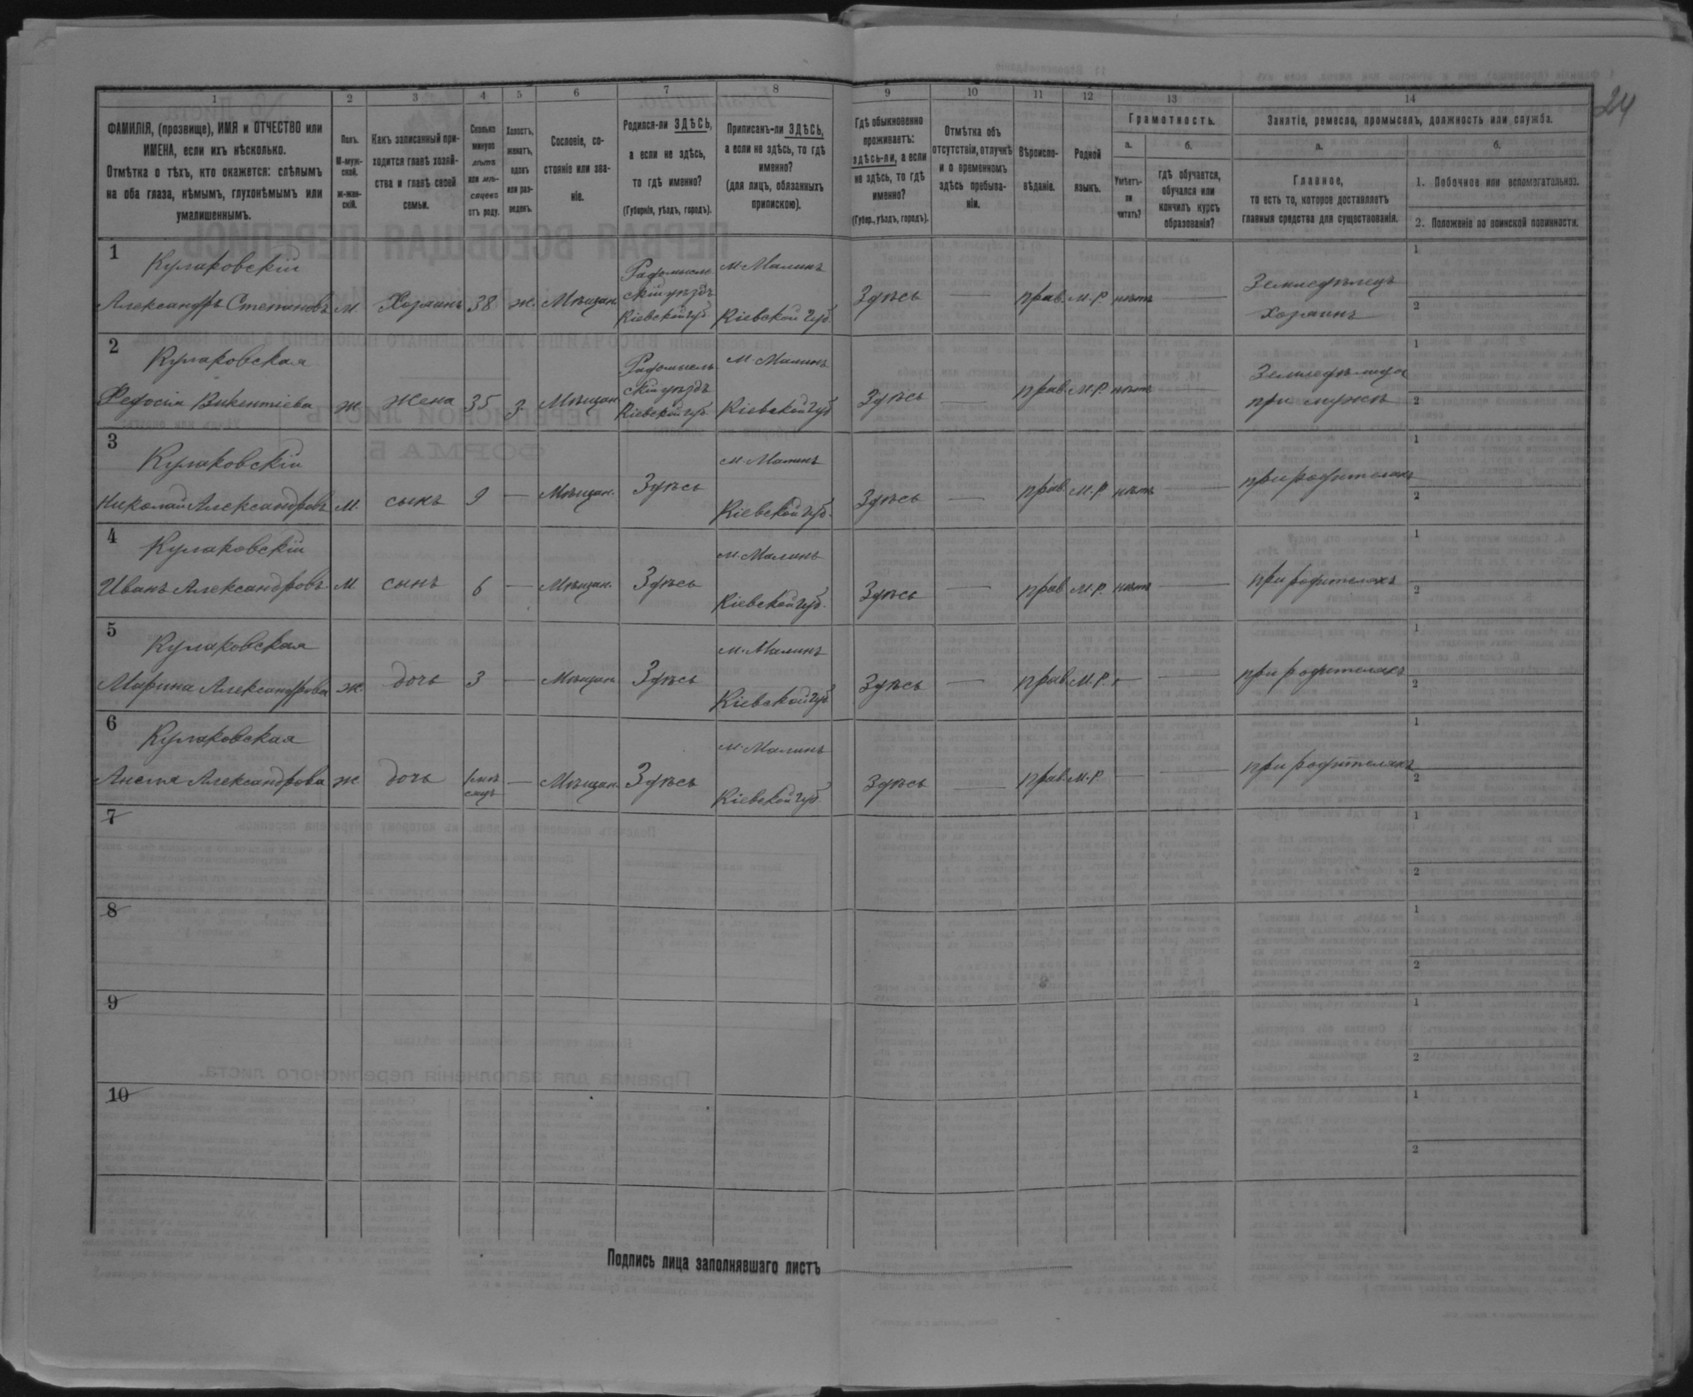 24
1 2 3 4 5 6 7 8 9 10 11 12 13 14
ФАМИЛІЯ, (прозвище), ИМЯ и ОТЧЕСТВО или
ИМЕНА, если ихъ нѣсколько.
Отмѣтка о тѣхъ, кто окажется: слѣпымъ
на оба глаза, нѣмымъ, глухонѣмымъ или
умалишеннымъ.
Полъ.
М-муж-
ской.
Ж-жен-
скій.
Какъ записанный при-
ходится главѣ хозяй-
ства и главѣ своей
семьи.
Сколько
минуло
лѣтъ
или мѣ-
сяцевъ
отъ роду.
Холостъ,
женатъ,
вдовъ
или раз-
веденъ.
Сословіе, со-
стояніе или зва-
ніе.
Родился-ли ЗДѢСЬ,
а если не здѣсь,
то гдѣ именно?
(Губернія, уѣздъ, городъ).
Приписанъ-ли ЗДѢСЬ,
а если не здѣсь, то гдѣ
именно?
(для лицъ, обязанныхъ
припискою).
Гдѣ обыкновенно
проживаетъ:
здѣсь-ли, а если
не здѣсь, то гдѣ
именно?
(Губер., уѣздъ, городъ).
Отмѣтка объ
отсутствіи, отлучкѣ
и о временномъ
здѣсь пребыва-
ніи.
Вѣроиспо-
вѣданіе.
Родной
языкъ.
Грамотность.
а.
Умѣетъ-
ли
читать?
б.
гдѣ обучается,
обучался или
кончилъ курсъ
образованія?
Занятіе, ремесло, промыселъ, должность или служба.
а.
Главное,
то есть то, которое доставляетъ
главныя средства для существованія.
б.
1. Побочное или вспомогательное.
2. Положеніе по воинской повинности.
1
Кулаковскій
Александръ Степановъ м. Хозяинъ 38 ж. Мѣщан.
Радомысль
скій уѣздъ
Кіевской губ.
м. Малинъ
Кіевской губ.
Здѣсь — прав. М.Р. нѣтъ —
Земледѣлецъ
хозяинъ
1
2
2
Кулаковская
Федосія Викентіева ж. жена 35 з. Мѣщан.
Радомысль
скій уѣздъ
Кіевской губ.
м. Малинъ
Кіевской губ.
Здѣсь — прав. М.Р. нѣтъ —
при мужѣ
1
2
3
Кулаковскій
Николай Александровъ м. сынъ 9 — Мѣщан. Здѣсь
м. Малинъ
Кіевской губ.
Здѣсь — прав. М.Р. нѣтъ —
при родителяхъ
1
2
4
Кулаковскій
Иванъ Александровъ м сынъ 6 — Мѣщан. Здѣсь
м. Малинъ
Кіевской губ.
Здѣсь — прав. М.Р. нѣтъ —
при родителяхъ
1
2
5
Кулаковская
Марина Александрова ж. дочь 3 — Мѣщан. Здѣсь
м. Малинъ
Кіевской губ.
Здѣсь — прав. М.Р. — —
при родителяхъ
1
2
6
Кулаковская
Александрова ж дочь — Мѣщан. Здѣсь
м. Малинъ
Кіевской губ.
Здѣсь — прав. М.Р. — —
при родителяхъ
1
2
7
1
2
8
1
2
9
1
2
10
1
2
Подпись лица заполнявшаго листъ